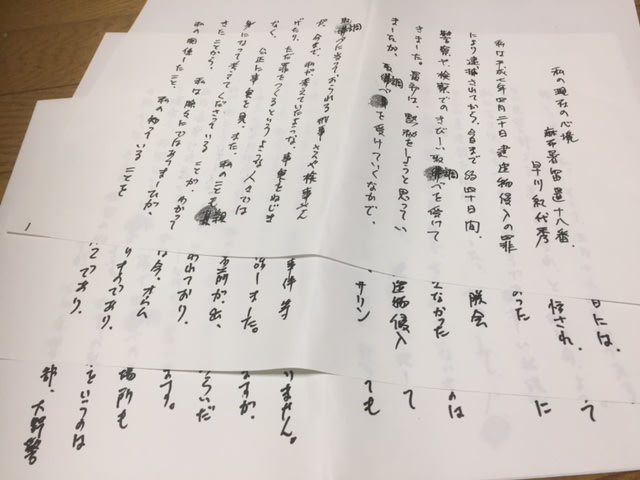 私の現在の心境
麻布署留置十八番
早川紀代秀
私は平成七年四月二十日 建造物侵入の罪
により逮捕されてから、今日まで約四十日間、
警察や、検察でのきびしい取調べを受けて
きました。当初は、黙秘をしようと思ってい
ましたが、取調べを受けていくなかで、
取調べに当っておられる刑事さんや検事さん
が、今まで、私が考えていたような、事実をねじま
げたり、ただ罪をつくるというような人々では
なく、公正に事実を見、また、私のことを親
身になって考えてくださっていることが、わかって
きたことから、私は徐々にではありましたが、
私の関係したこと、私の知っていることを
1
日には、
悟され、
のった
勝会
となかった
建物侵入
サリン
事件等
話しました。
場所が、出
われており、
は今、オウム
りますのであり、
とっており、
う
に
のは
て
ても
りません。
ますが、
らいだ
ます。
場所も
をいうのは
部、大野警